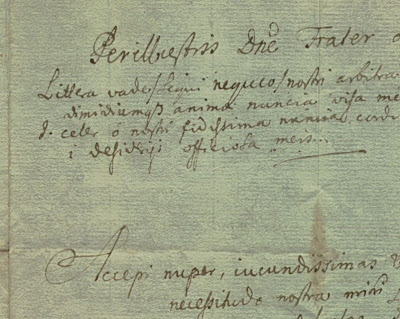 Perillustris Dne Frater
Littera vade/sequi nequeo/nostri arbitra
dimidiumq3 animæ nuncia visa me
J. celer o nostri fidissima nuncia cordi
i desiderijs officiosa meis...
Accepi nuper, iucundissimas
necessitudo nostra mihi